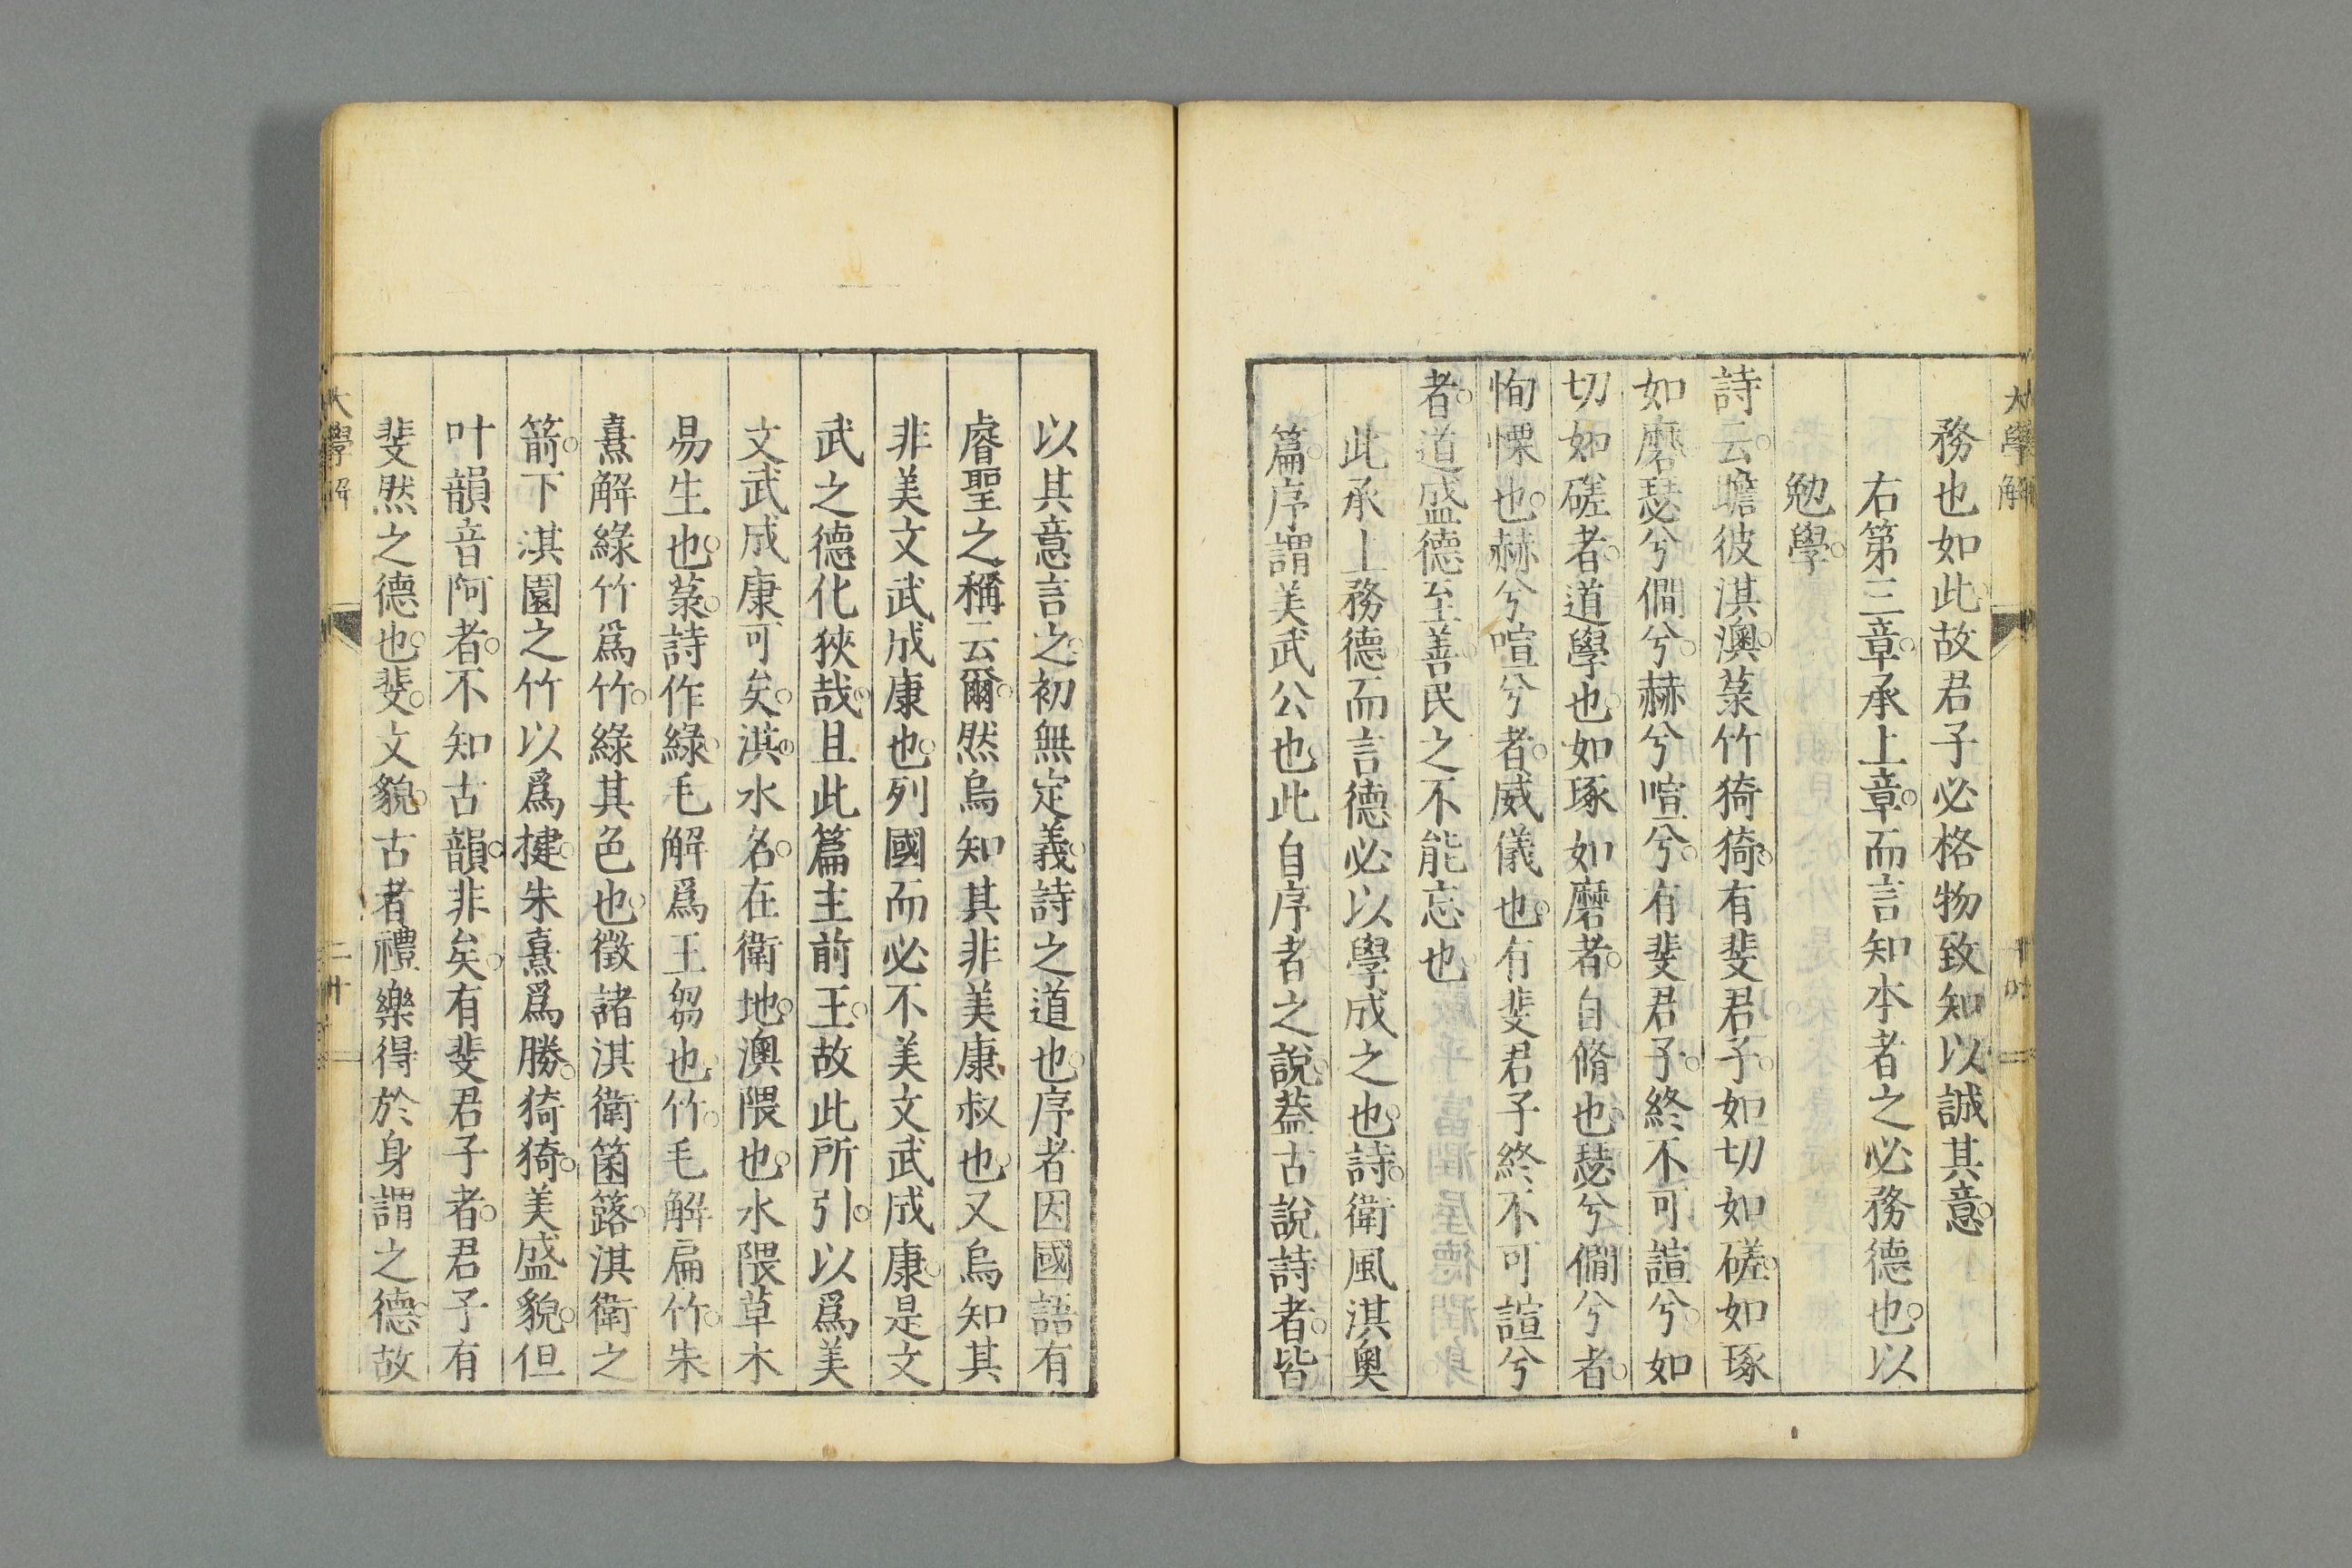 大學解
務也如此故君子必格物致知以誠其意
右第三章承上章而言知本者之必務德也以
勉學
詩云瞻彼淇澳菉竹猗猗有斐君子如切如磋如琢
如磨瑟兮僩兮赫兮喧兮有斐君子終不可諠兮如
切如磋者道學也如琢如磨者自脩也瑟兮僩兮者
恂慄也赫兮喧兮者威儀也有斐君子終不可諠兮
者道盛德至善民之不能忘也
此承上務德而言德必以學成之也詩衛風淇奧
篇序謂美武公也此自序者之說葢古說詩者皆
以其意言之初無定義詩之道也序者因國語有
睿聖之稱云爾然烏知其非美康叔也又烏知其
非美文武成康也列國而必不美文武成康是文
武之德化狹哉且此篇主前王故此所引以爲美
文武成康可矣淇水名在衛地澳隈也水隈草木
易生也菉詩作綠毛解爲王芻也竹毛解扁竹朱
熹解綠竹爲竹綠其色也徵諸淇衛箘簬淇衛之
箭下淇園之竹以爲揵朱熹爲勝猗猗美盛貌但
叶韻音阿者不知古韻非矣有斐君子者君子有
斐然之德也斐文貌古者禮樂得於身謂之德故
大學解
二十